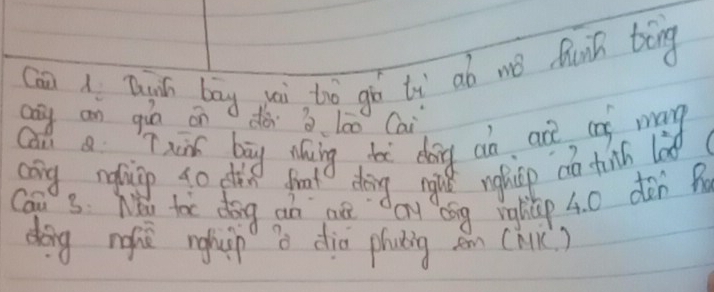 Câu 1: Trình bày vai trò giá trị của mô hình trồng
cây ăn quả ôn đới ở Lào Cai
Câu 2: Trình bày những tác động của các cuộc mạng
công nghiệp 4.0 đến hoạt động nghề nghiệp của tỉnh Lào C
Câu 3: Nêu tác động của CM công nghiệp 4.0 đến ho
động nghề nghiệp ở địa phương em (MK)